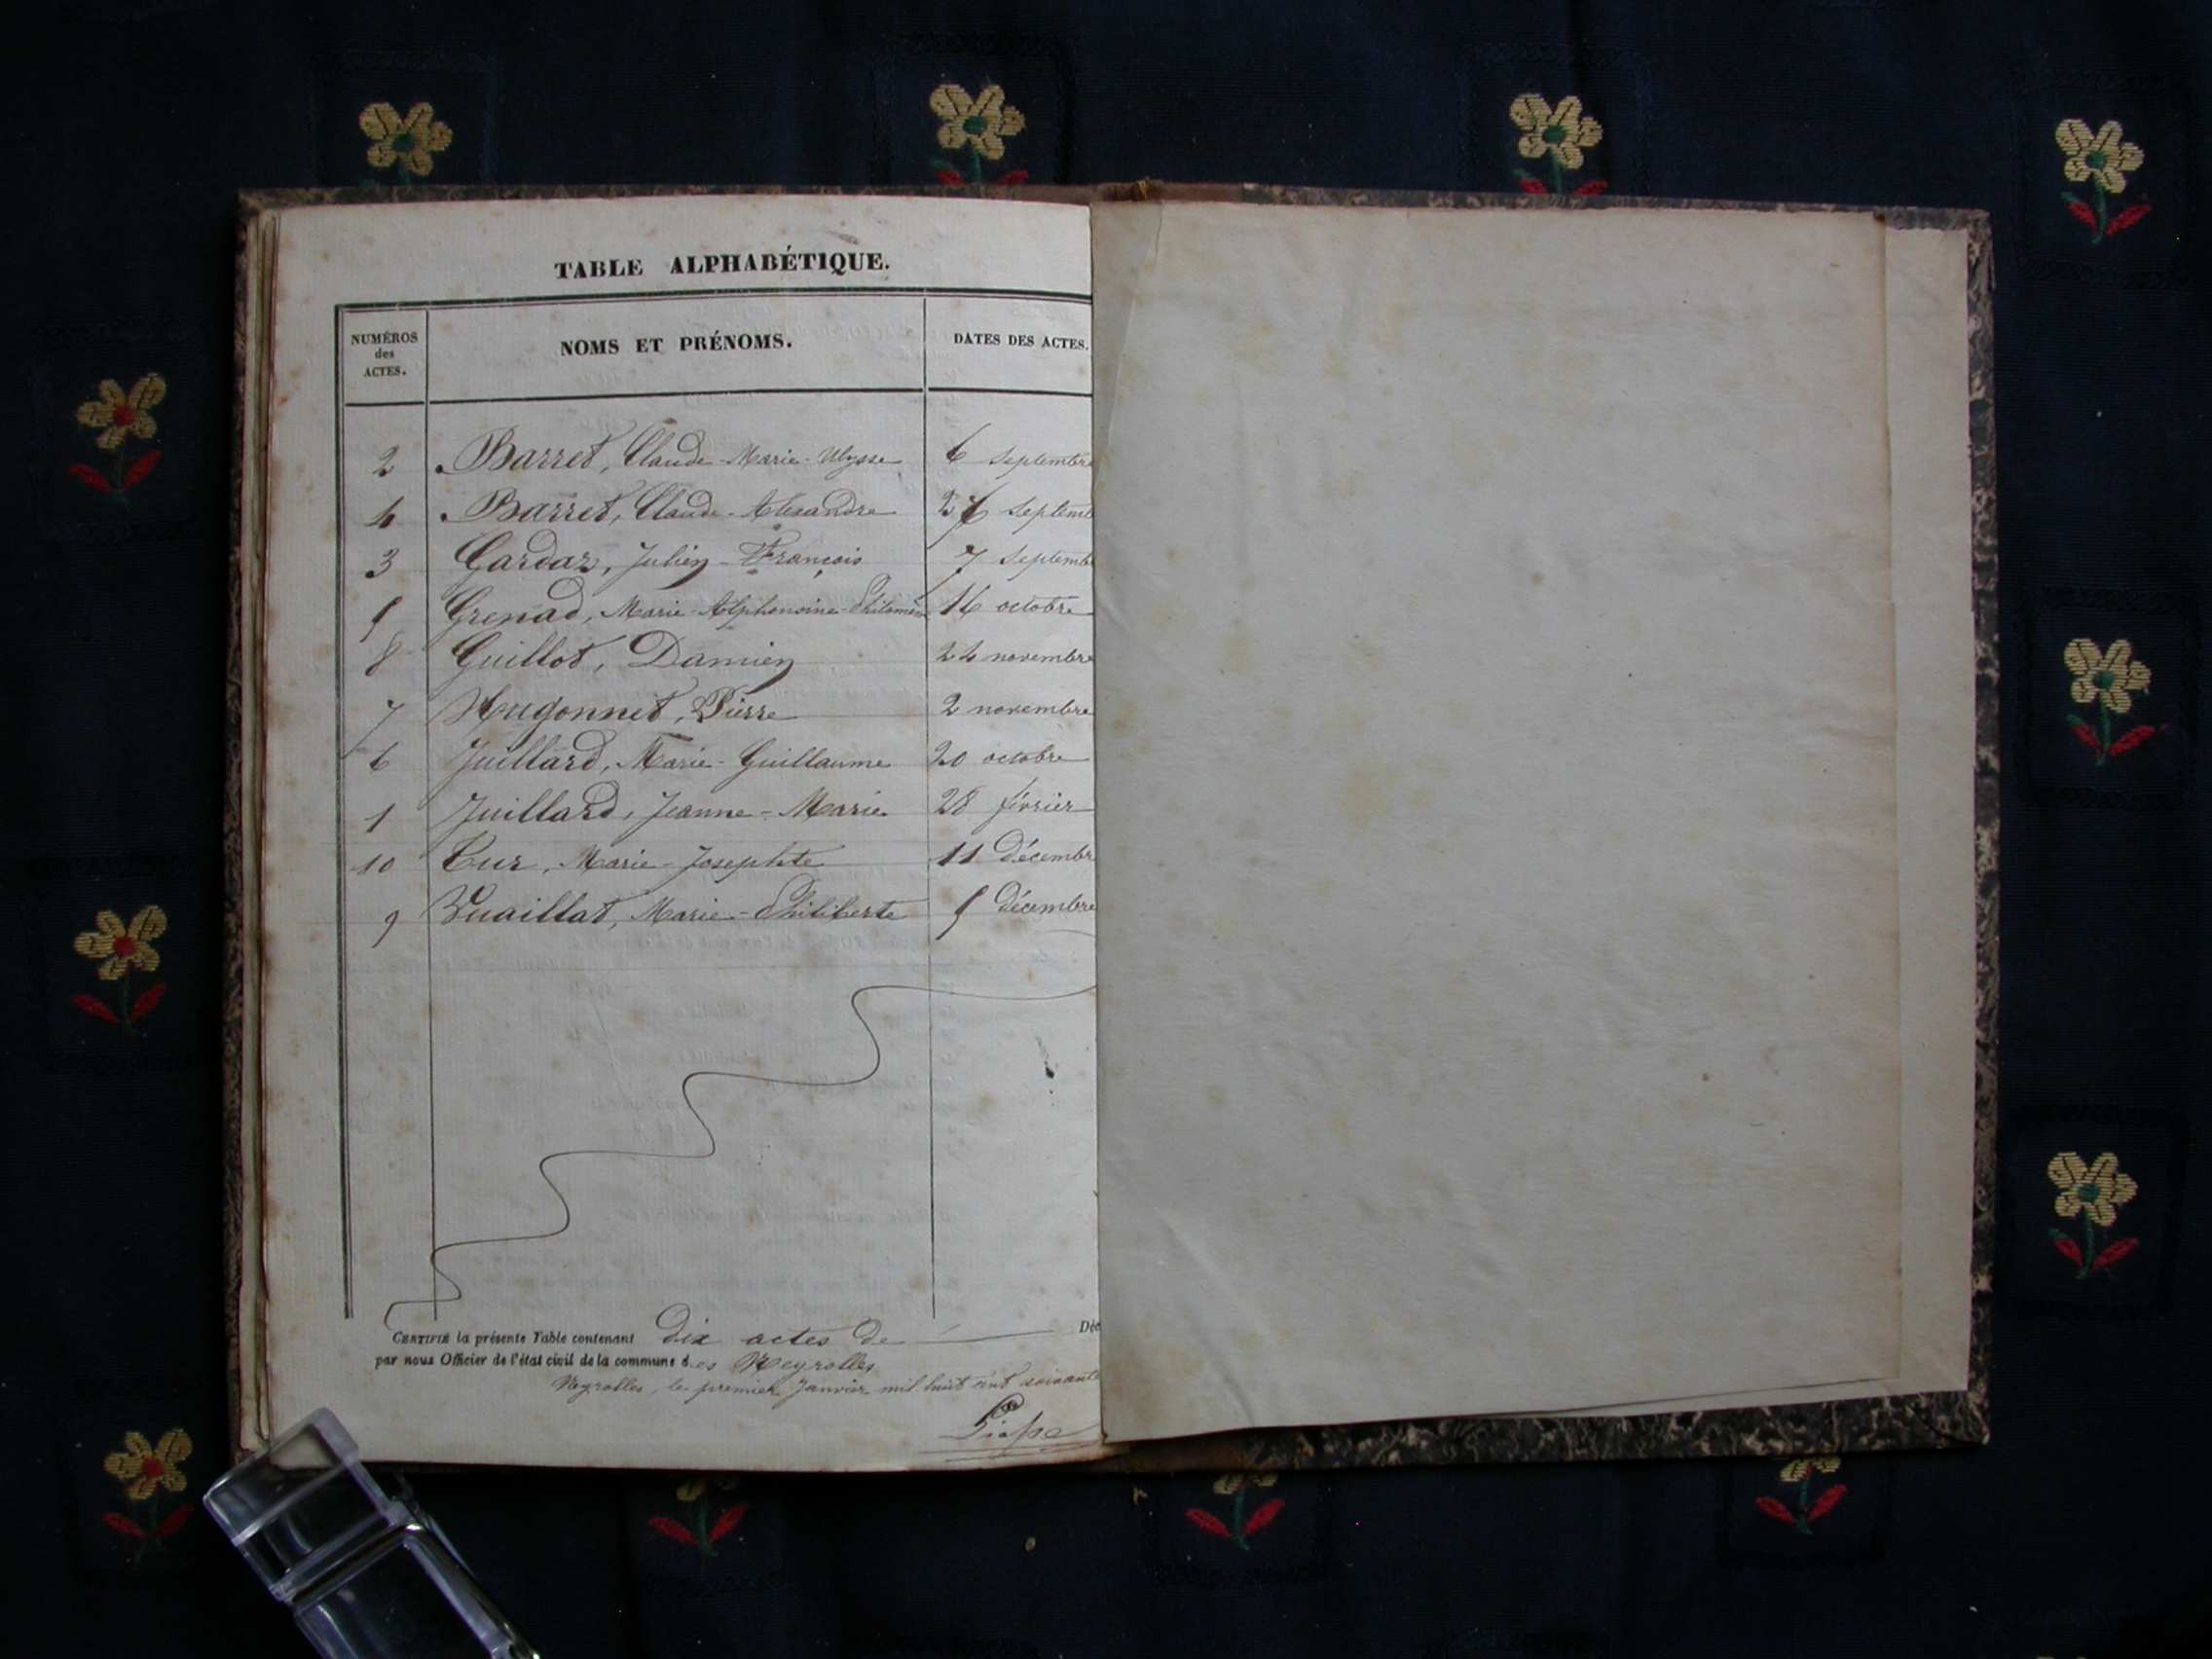 TABLE ALPHABÉTIQUE.
NUMÉROS des ACTES. NOMS ET PRÉNOMS. DATES DES ACTES.
2 Barret, Claude-Marie-Ulysse 6 septembre
4 Barret, Claude-Alexandre 26 septemb
3 Gardaz, Julien-François 7 septemb
5 Grenad, Marie-Alphonsine-Philomène 16 octobre
8 Guillot, Damien 24 novembre
7 Hugonnet, Pierre 2 novembre
6 Juillard, Marie-Guillaume 20 octobre
1 Juillard, Jeanne-Marie 28 février
10 Tur, Marie-Josephte 11 décembr
9 Vuaillat, Marie-Philiberte 5 décembre
CERTIFIÉ la présente Table contenant dix actes de Déc
par nous Officier de l'état civil de la commune des Neyrolles
Neyrolles, le premier Janvier mil huit cent soixante